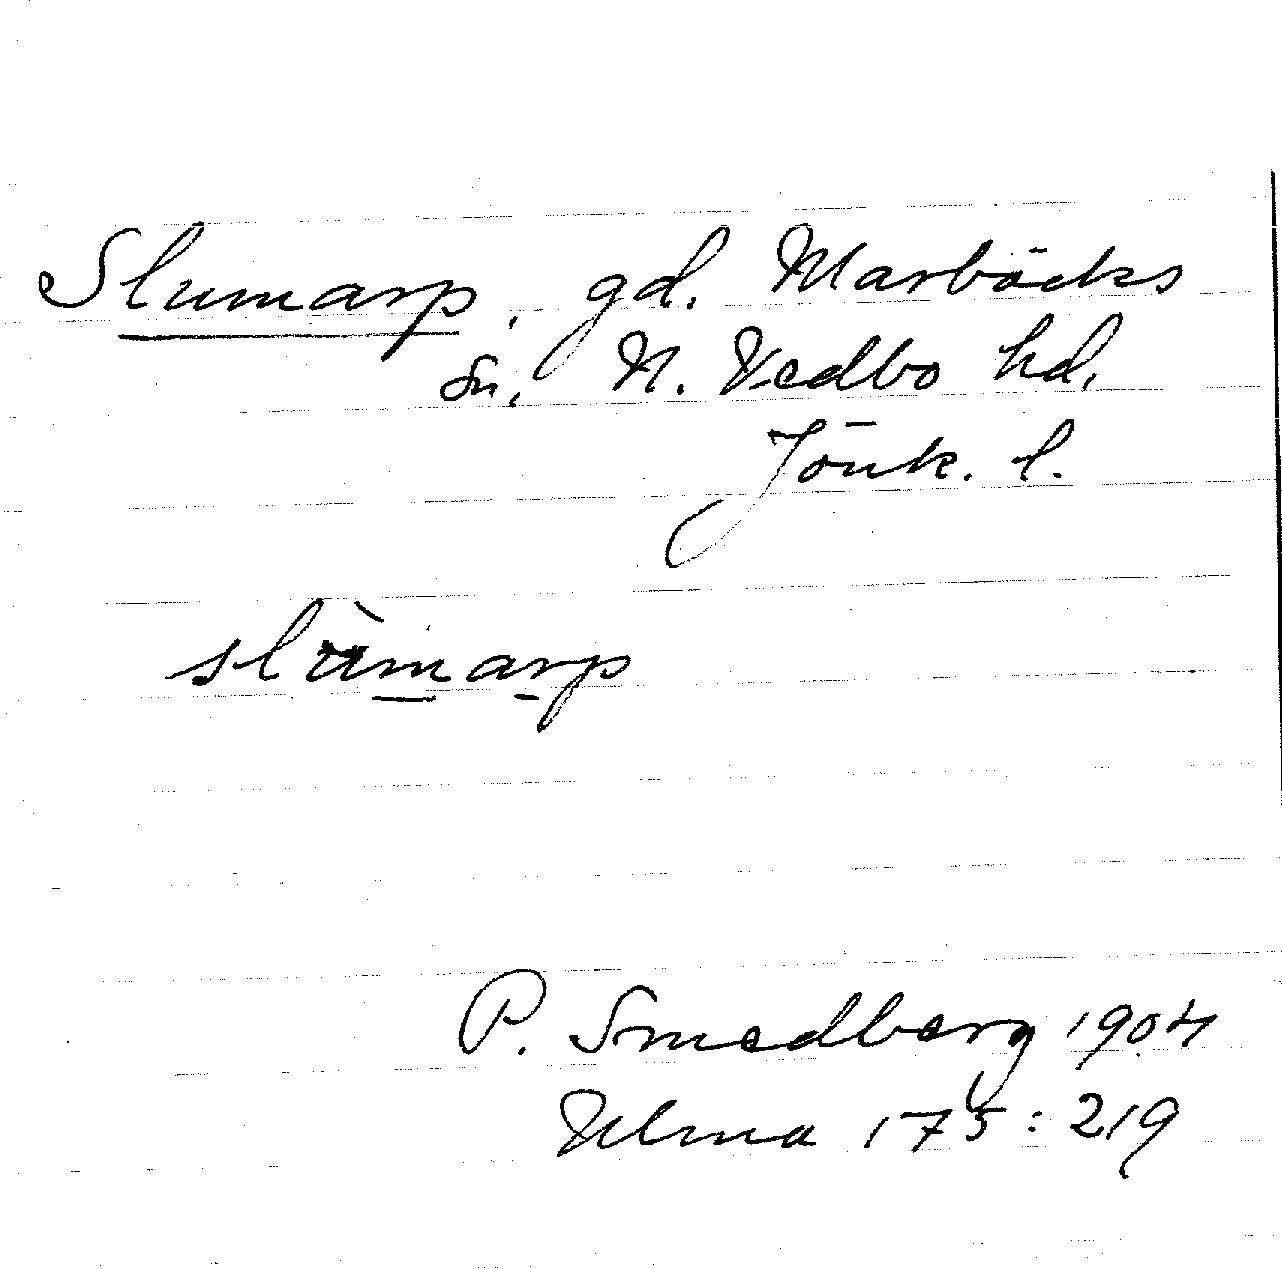 Slumarp, gd. Marbäcks
sn, N. Vedbo hd,
Jönk. l.
slùmarp
P. Smedberg 1904
Ulma 175:219